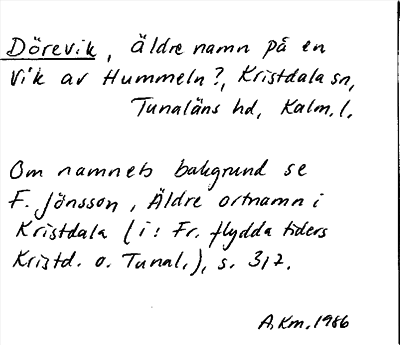 Dörevik, äldre namn på en
vik av Hummeln?, Kristdala sn,
Tunaläns hd, Kalm. l.
Om namnets bakgrund se
F. Jönsson, Äldre ortnamn i
Kristdala (i: Fr. flydda tiders
Kristd. o. Tunal.), s. 312.
A.Km. 1986